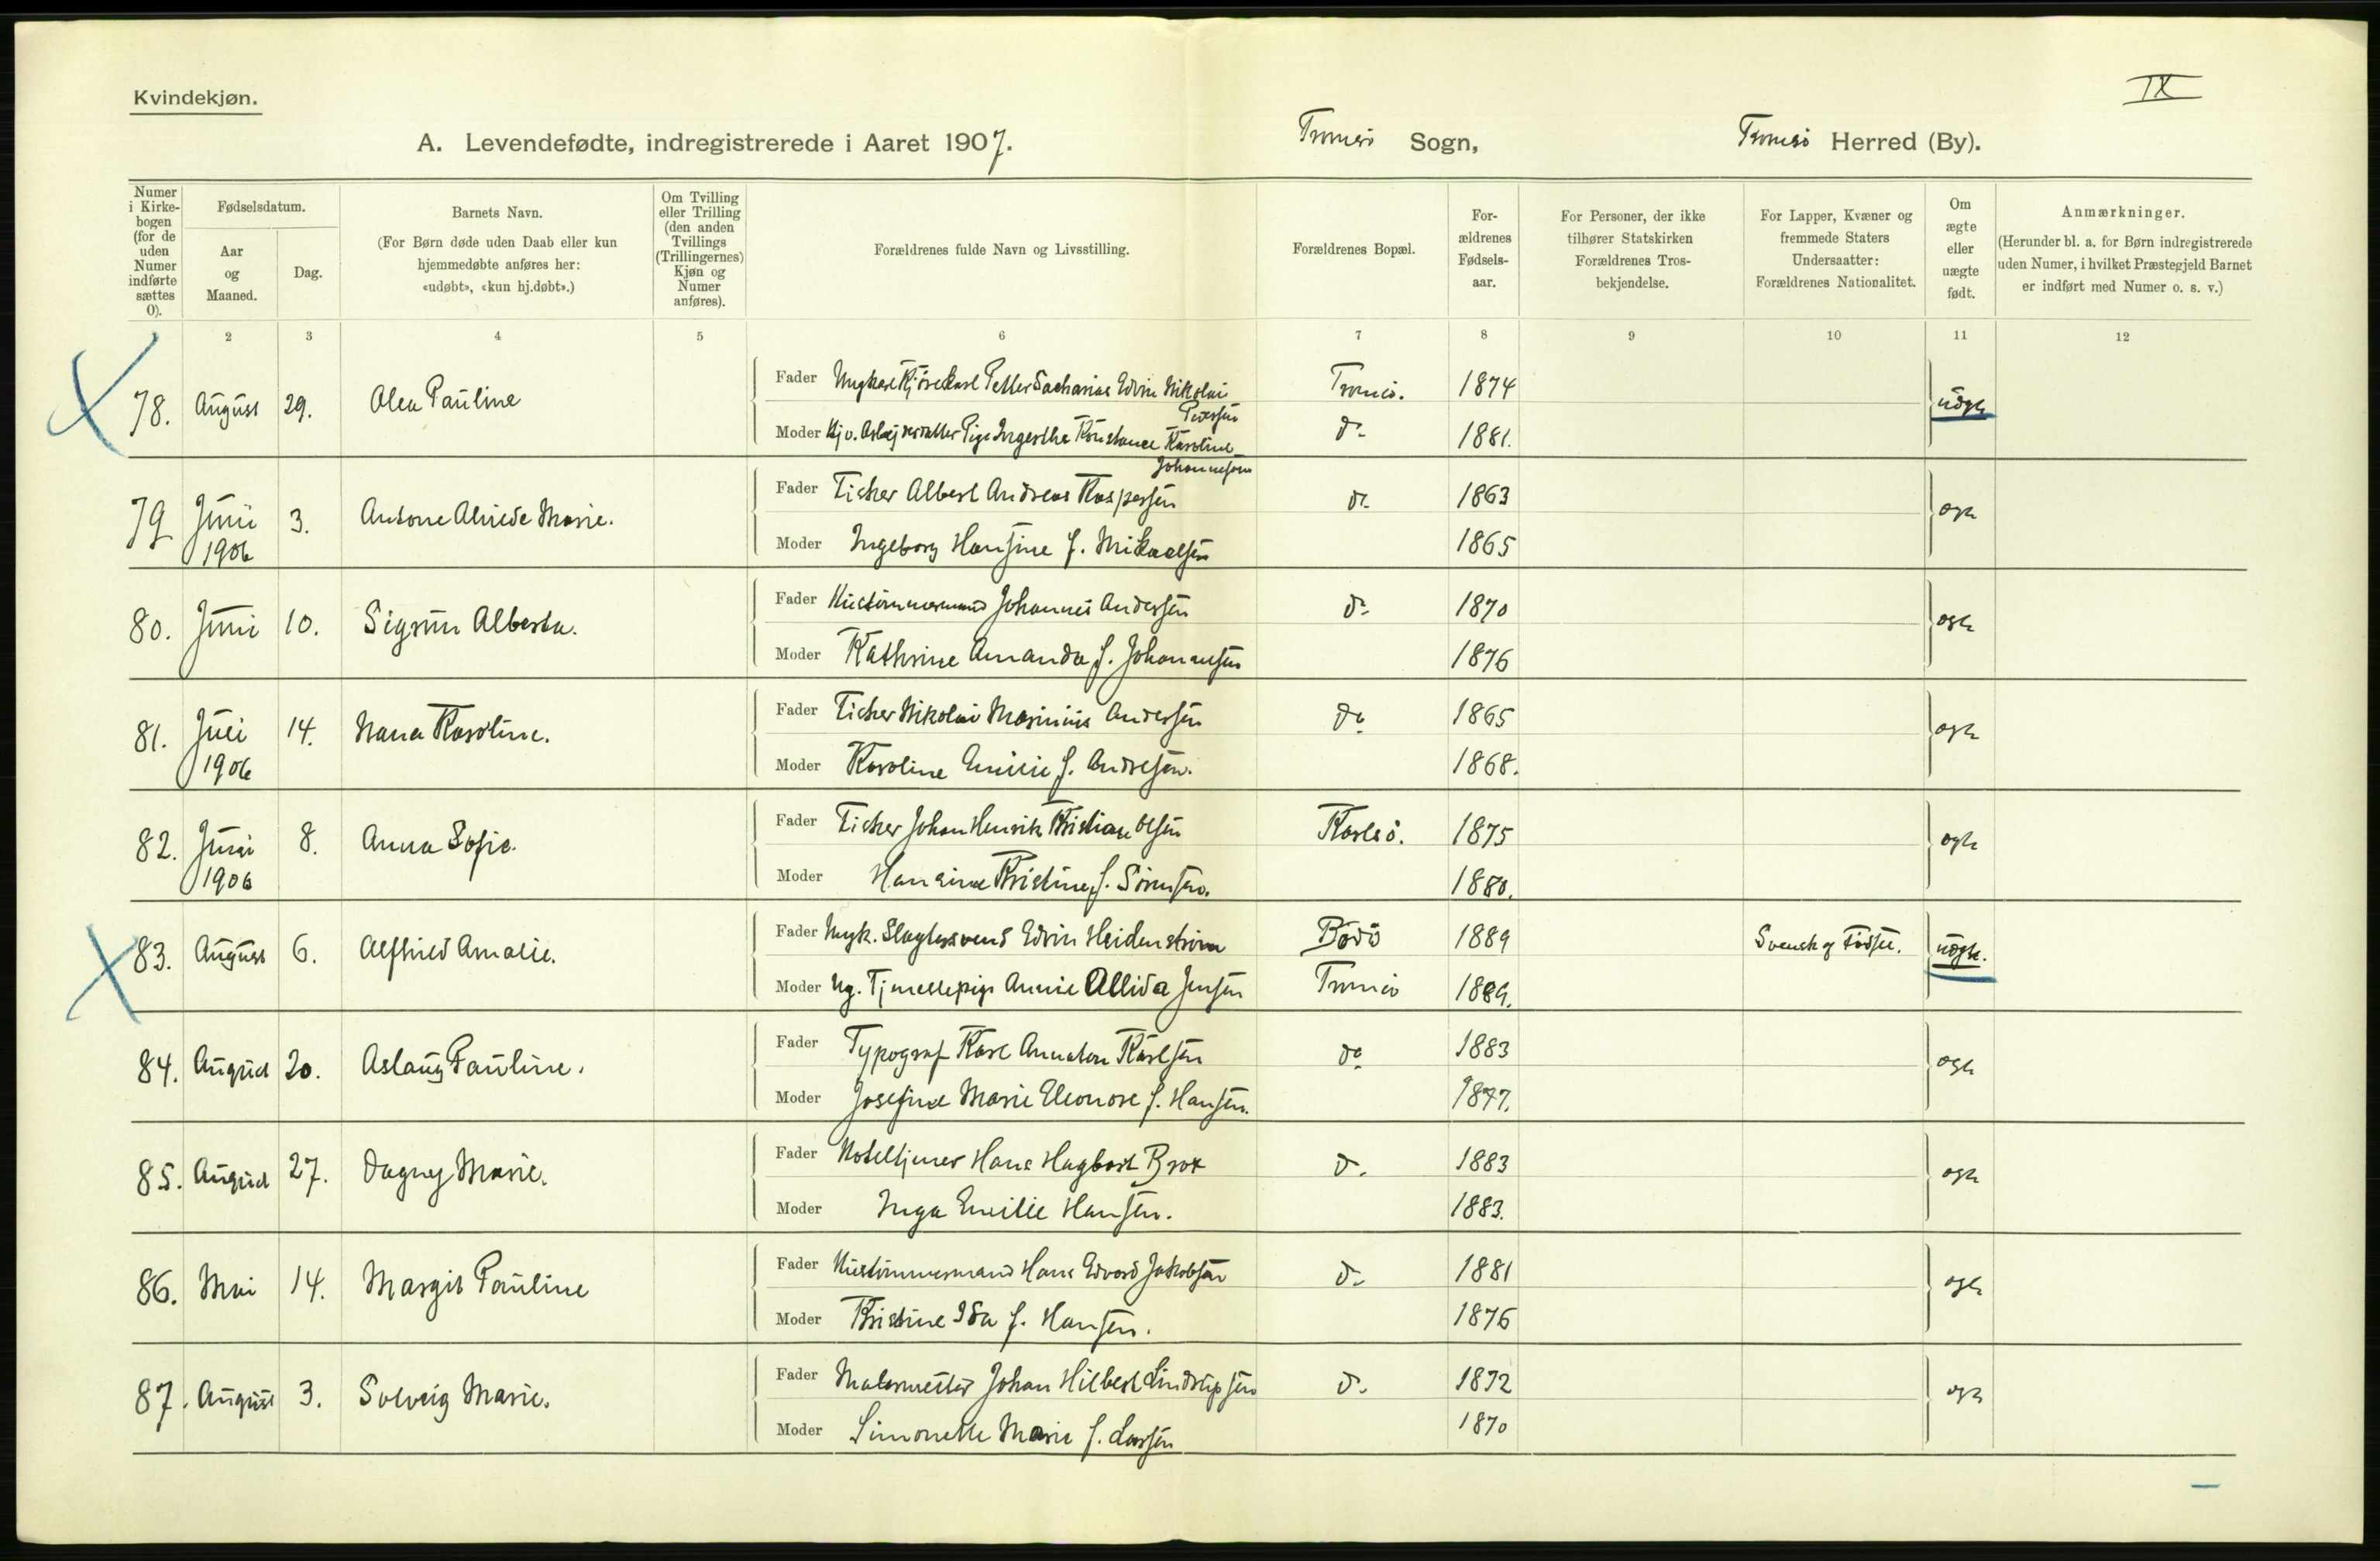 Kvindekjøn.
IX
A. Levendefødte, indregistrerede i Aaret 1907.
Tromsø Sogn,
Tromsø Herred (By).
Numer i Kirkebogen (for de uden Numer indførte sættes 0).
Fødselsdatum.
Aar og Maaned.
Dag.
Barnets Navn.
(For Børn døde uden Daab eller kun hjemmedøbte anføres her: «udøbt», «kun hj.døbt».)
Om Tvilling eller Trilling (den anden Tvillings (Trillingernes) Kjøn og Numer anføres).
Forældrenes fulde Navn og Livsstilling.
Forældrenes Bopæl.
For-ældrenes Fødsels-aar.
For Personer, der ikke tilhører Statskirken Forældrenes Tros-bekjendelse.
For Lapper, Kvæner og fremmede Staters Undersaatter: Forældrenes Nationalitet.
Om ægte eller uægte født.
Anmærkninger.
(Herunder bl. a. for Børn indregistrerede uden Numer, i hvilket Præstegjeld Barnet er indført med Numer o. s. v.)
2 3 4 5 6 7 8 9 10 11 12
78. August 29. Olea Pauline
Fader Petter Sacharias Edvin Nikolai Tromsø. 1874 uægte
Moder Pige Konstance Karoline d. 1881.
Johannesen
79 Juni 3. Antone Alvilde Marie.
1906
Fader Fisker Albert Andreas Kaspersen do 1863 ægte
Moder Ingeborg Hansine f. Mikaelsen 1865
80. Juni 10. Sigrun Alberta.
Fader Hustømmermand Johannes Andersen do 1870 ægte
Moder Kathrine Amanda f. Johannesen 1876
81. Juli 14. Nana Karoline.
1906
Fader Fisker Nikolai Marinius Andersen do 1865 ægte
Moder Karoline Emilie f. Andresen. 1868.
82. Juni 8. Anna Sofie.
1906
Fader Fisker Johan Henrik Kristian Olsen Karlsø. 1875 ægte
Moder Hansine Kristine f. Sørensen. 1880.
83. August 6. Alfhild Amalie.
Fader Ungk. Slagtersvend Edvin Heidenstrøm Bodø 1889 Svensk Fødsel. uægte.
Moder Ug. Tjenestepige Annie Allida Jensen Tromsø 1889.
84. August 20. Aslaug Pauline.
Fader Typograf Karl Annaton Karlsen do 1883 ægte
Moder Josefine Marie Eleonore f. Hansen. 1877.
85. August 27. Dagny Marie.
Fader Hoteltjener Hans Hagbart Brox d. 1883 ægte
Moder Inga Emilie Hansen. 1883.
86. Mai 14. Margit Pauline
Fader Hustømmermand Hans Edvard Jakobsen d. 1881 ægte
Moder Kristine Ida f. Hansen. 1876
87. August 3. Solveig Marie.
Fader Malermester Johan Hilbert Lindrupsen d. 1872 ægte
Moder Simonette Marie f. Larsen 1870